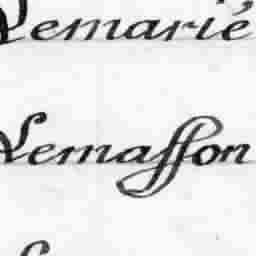 Lemarié
Lemasson